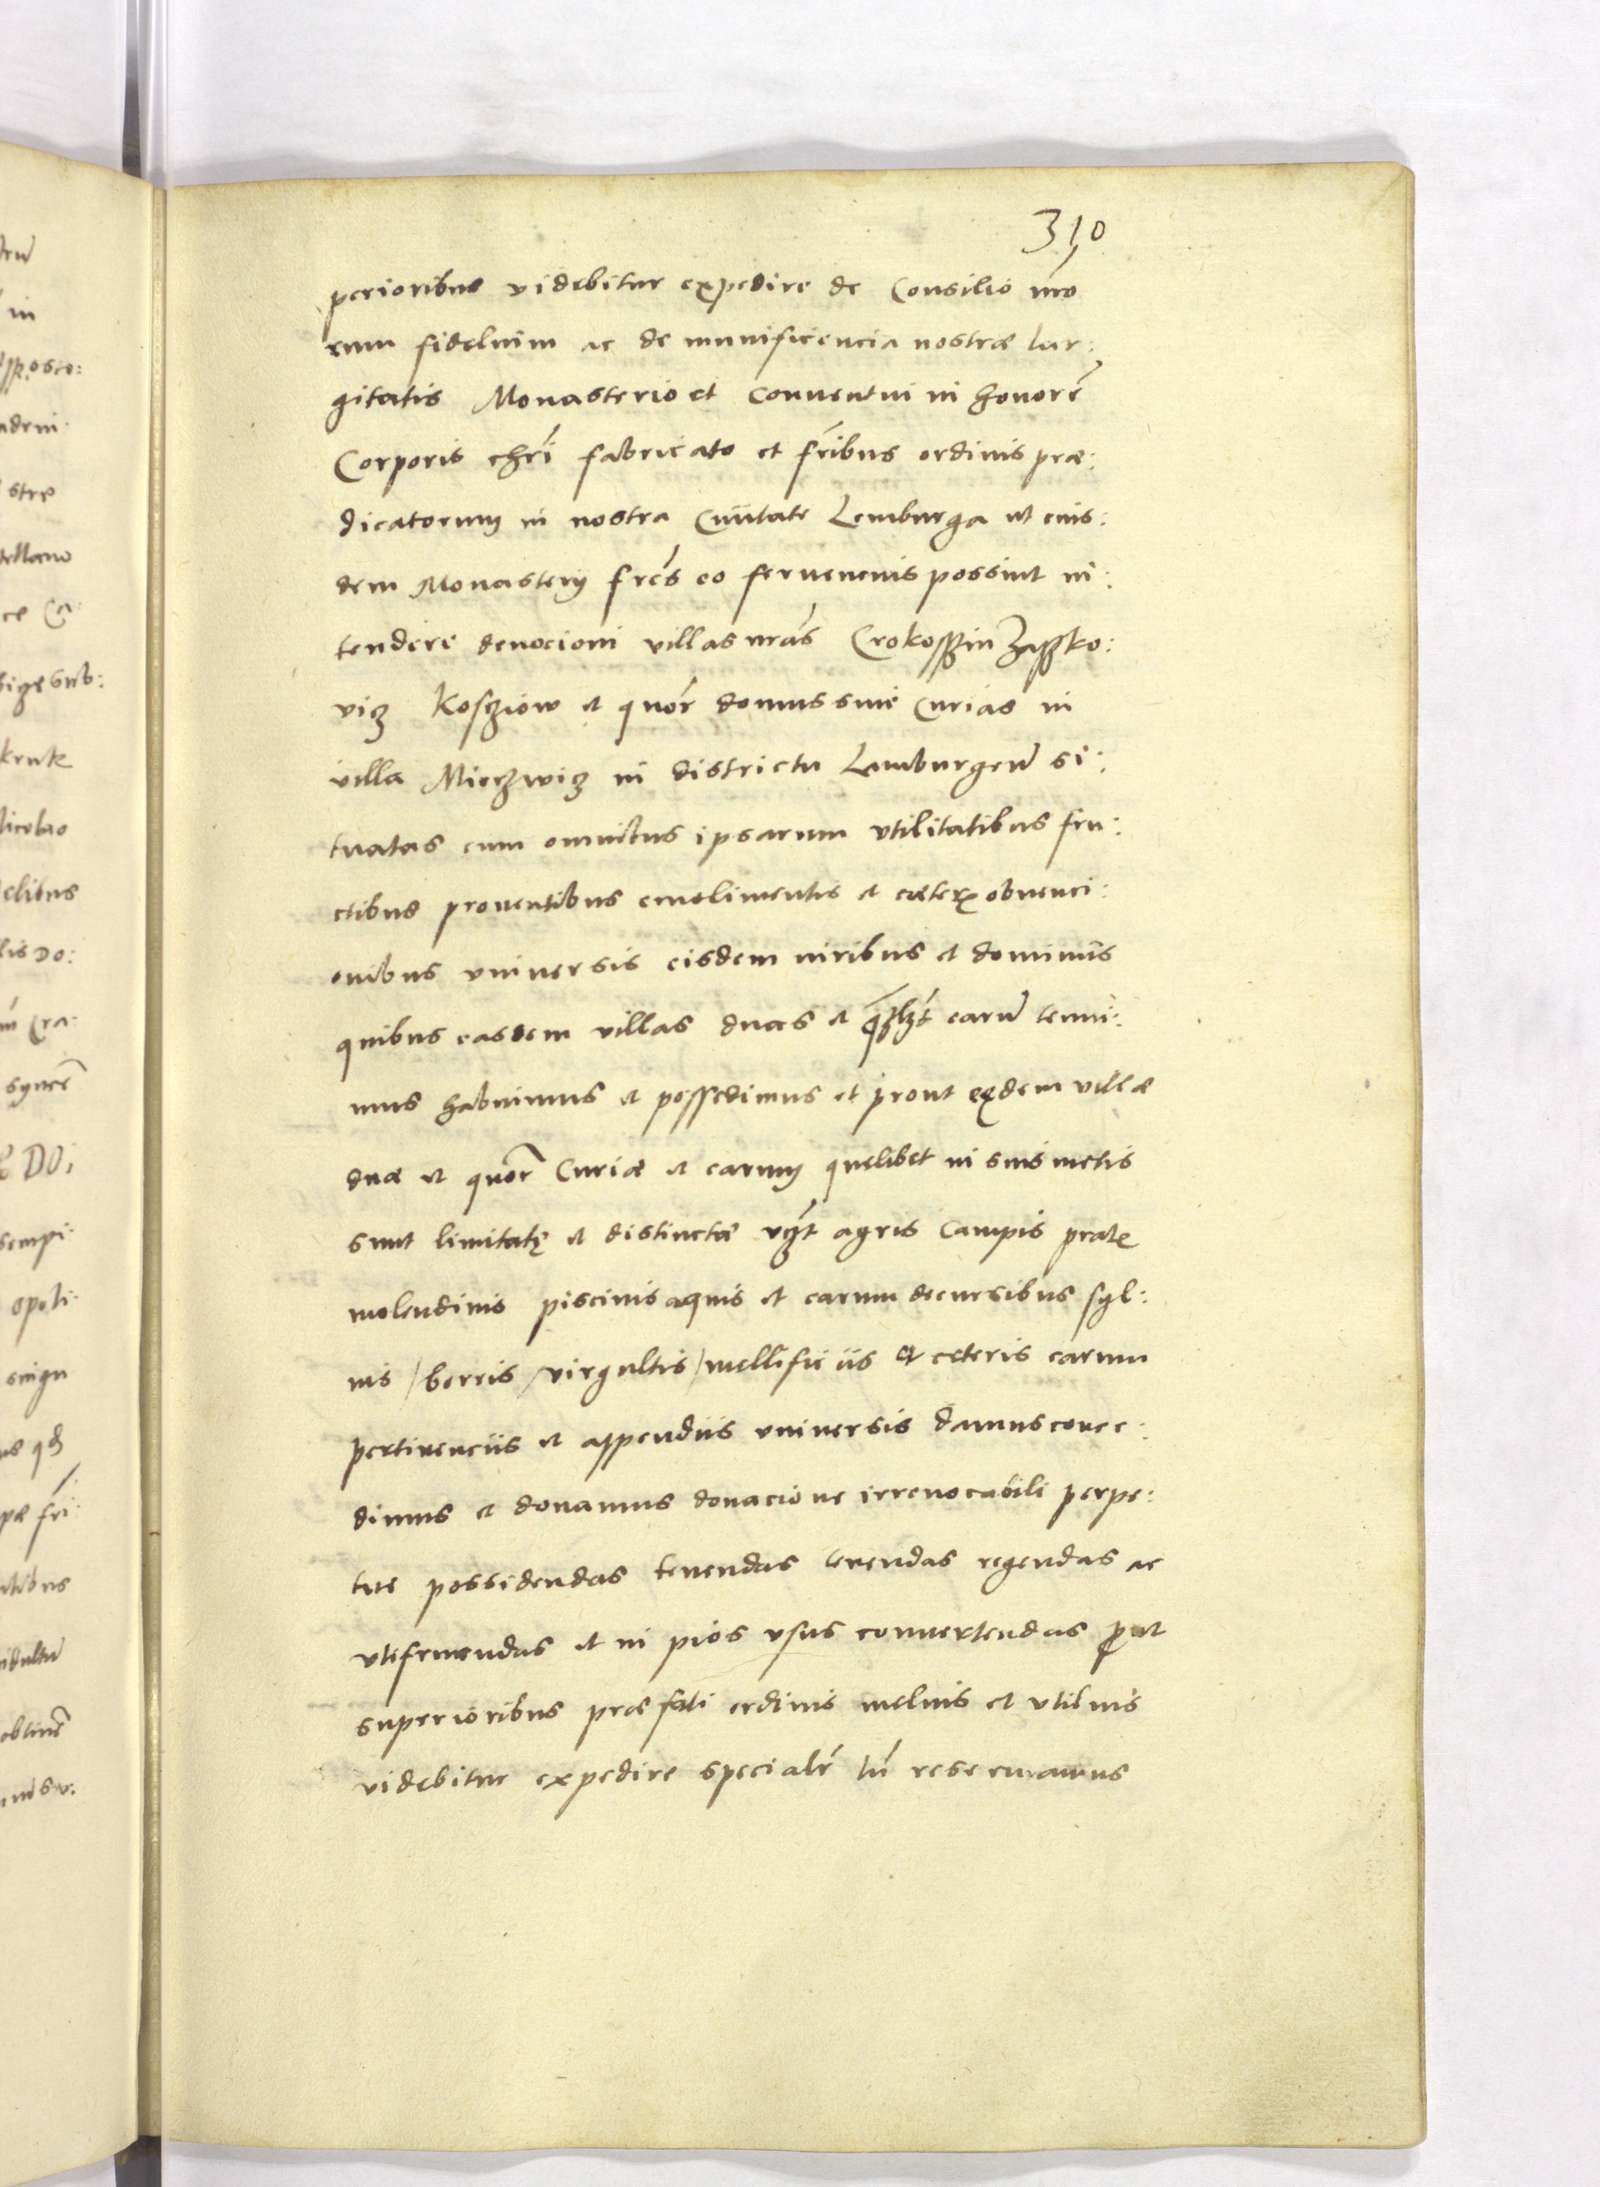 310
perioribus videbitur expedire de Consilio nr̃o
rum fidelium ac de munificencia nostræ lar:
gitatis Monasterio et Conuentui in honorẽ
Corporis chrĩ fabricato et fr̃ibus ordinis præ:
dicatorum in nostra Ciuitate Lemburga ut eius:
dem Monasterij fr̃es eo feruencius possint in:
tendere deuocioni villas nr̃as Crokosszin Zasszko:
vicz Kosziow et quõr domus siue Curias in
villa Mierzwicz in districtu Lemburgen̄ si:
tuatas cum omnibus ipsarum vtilitatibus fru:
ctibus prouentibus emolimentis et cæteris obuenci:
onibus vniuersis eisdem iuribus et dominiis
quibus easdem villas duas et earum̄ tenui:
mus habuimus et possedimus et prout eędem villæ
duæ et quõr Curiæ et earum quelibet in suis metis
sunt limitatę et distinctæ agris Campis prat
molendinis piscinis aquis et earum decursibus syl:
uis / borris / virgultis / mellificiis et ceteris earum
pertinenciis et appendiis vniuersis damus conce:
dimus et donamus donacione irreuocabili perpe:
tue possidendas tenendas regendas ac
vtifruendas et in pios vsus conuertendas ꝓut
superioribus præfati ordinis melius et vtilius
videbitur expedire specialr̃ tñ reseruamus